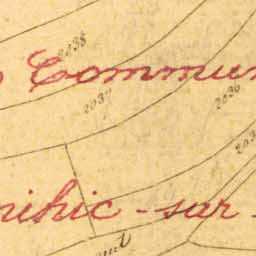 2038
Commun
2037
2036
203
inihic-sur-